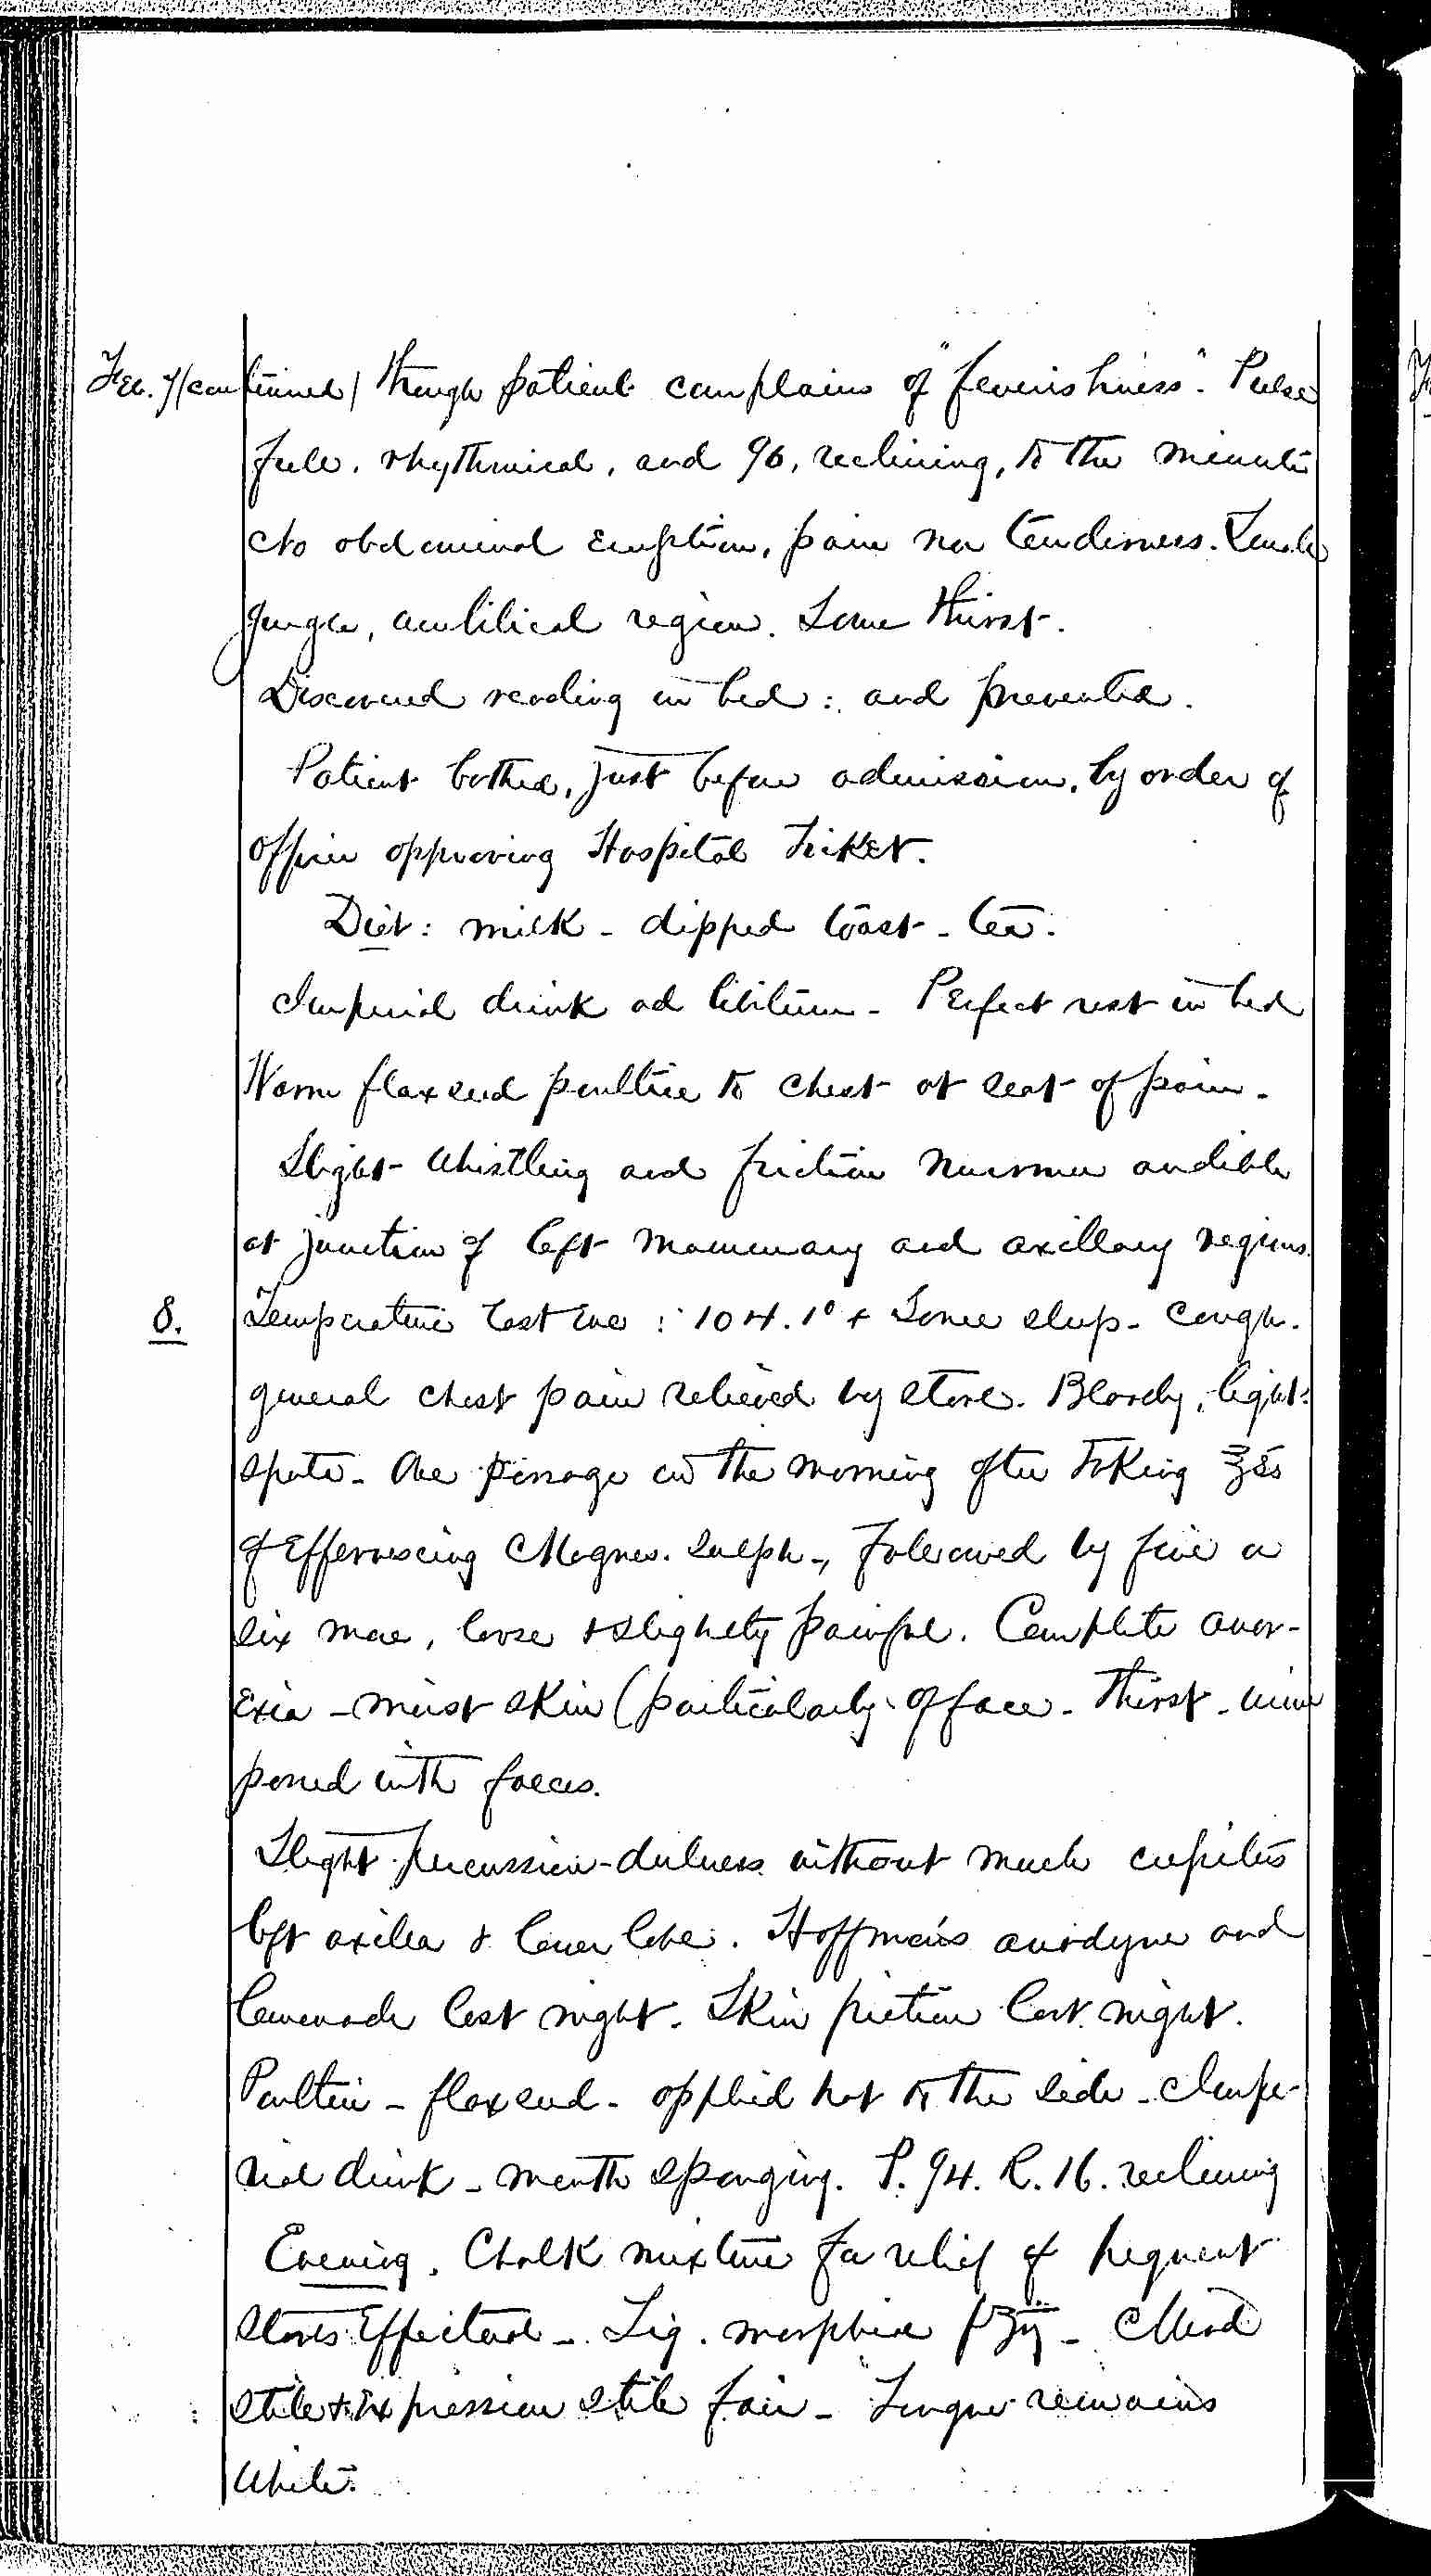 Feb. 7 (continued) though patient complains of "feverishness". Pulse
full, rhythmical, and 96, reclining, to the minute
No abdominal eruption, pain nor tenderness. Some
gurgle, umbilical region. Some thirst.
Discovered reading in bed: and prevented.
Patient bathed, just before admission, by order of
officer approving Hospital Ticket.
Diet: milk - dipped toast - tea.
Imperial drink ad libitum - Perfect rest in bed
Warm flaxseed poultice to chest at seat of pain.
Slight whistling and friction murmur audible
at junction of left mammary and axillary regions.
8. Temperature last eve: 104.1° + Some sleep - Cough.
general chest pain relieved by stove. Bloody, light
sputa - One passage in the morning after taking ℥ss
of Effervescing Magnes. Sulph., followed by five or
six more, loose & slightly painful. Complete anor-
exia - moist skin (particularly of face - Thirst - urine
passed with faeces.
Slight percussion-dulness without much crepitus
left axilla & lower lobe. Hoffman's anodyne and
lemonade last night. Skin friction last night.
Poultice - flaxseed - applied hot to the side - Impe-
rial drink - mouth sponging. P. 94. R. 16. reclining
Evening. Chalk mixture for relief of frequent
stools Effectual - Liq. morphiae fʒij - Mind
still & Expression still fair - Tongue remains
white.